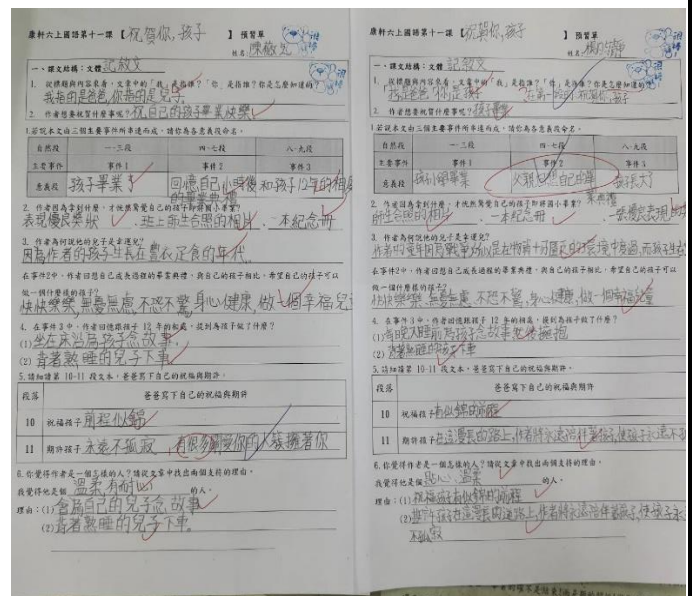 康軒六上國語第十一課【祝賀你,孩子】預習單
姓名:陳
一、課文結構:文體 記敘文
1. 從標題與內容來看,文章中的「我」是指誰?「你」是指誰?你是怎麼知道的?
我指的是爸爸,你指的是兒子
2. 作者想要祝賀什麼事呢?祝自己的孩子畢業快樂!
1.若說本文由三個主要事件所串連而成,請你為各意義段命名。
自然段 一~三段 四~七段 八~九段
主要事件 事件1 事件2 事件3
意義段 孩子畢業了 回憶自己小時後的畢業典禮 和孩子12年的相處
2. 作者因為拿到什麼,才恍然驚覺自己的孩子即將國小畢業?
表現優良獎狀、班上師生合照的相片、一本紀念冊
3. 作者為何說他的兒子是幸運兒?
因為作者的孩子生長在豐衣足食的年代.
在事件2中,作者回想自己成長過程的畢業典禮,與自己的孩子相比,希望自己的孩子可以
做一個什麼樣的孩子?
快快樂樂,無憂無慮,不恐不驚,身心健康,做一個幸福兒童
4. 在事件3中,作者回憶跟孩子 12 年的相處,提到為孩子做了什麼?
(1)坐在床沿為孩子念故事.
(2)背著熟睡的兒子下車
5.請細讀第 10-11 段文本,爸爸寫下自己的祝福與期許
段落 爸爸寫下自己的祝福與期許
10 祝福孩子前程似錦
11 期許孩子永遠不孤寂,有很多關愛你的人簇擁著你
6.你覺得作者是一個怎樣的人?請從文章中找出兩個支持的理由。
我覺得他是個 溫柔,有耐心 的人。
理由:(1)會為自己的兒子念故事
(2)背著熟睡的兒子下車.
康軒六上國語第十一課【祝賀你,孩子】預習單
姓名:
一、課文結構:文體 記敘文
1. 從標題與內容來看,文章中的「我」是指誰?「你」是指誰?你是怎麼知道的?
「我」是爸爸「你」是孩子
2. 作者想要祝賀什麼事呢?孩子畢業
1.若說本文由三個主要事件所串連而成,請你為各意義段命名。
自然段 一~三段 四~七段 八~九段
主要事件 事件1 事件2 事件3
意義段 孩子小學畢業 父親也想自己的畢業典禮 孩子長大了
2. 作者因為拿到什麼,才恍然驚覺自己的孩子即將國小畢業?
師生合照的相片、一本紀念冊、一張優良表現
3. 作者為何說他的兒子是幸運兒?
在事件2中,作者回想自己成長過程的畢業典禮,與自己的孩子相比,希望自己的孩子可以
做一個什麼樣的孩子?
快快樂樂,無憂無慮,不恐不驚,身心健康,做一個幸福兒童
4. 在事件3中,作者回憶跟孩子 12 年的相處,提到為孩子做了什麼?
(1)每晚入睡前為孩子念故事然後擁抱
(2)背著熟睡的孩子下車
5.請細讀第 10-11 段文本,爸爸寫下自己的祝福與期許
段落 爸爸寫下自己的祝福與期許
10 祝福孩子有似錦的前程
11 期許孩子在這漫長的路上,作者將永遠陪伴著孩子,使孩子永遠不
6.你覺得作者是一個怎樣的人?請從文章中找出兩個支持的理由。
我覺得他是個 貼心、溫柔 的人。
理由:(1)祝福孩子有似錦的前程
(2)孩子在這漫長的道路上,作者將永遠陪伴著孩子,使孩子永
不孤寂